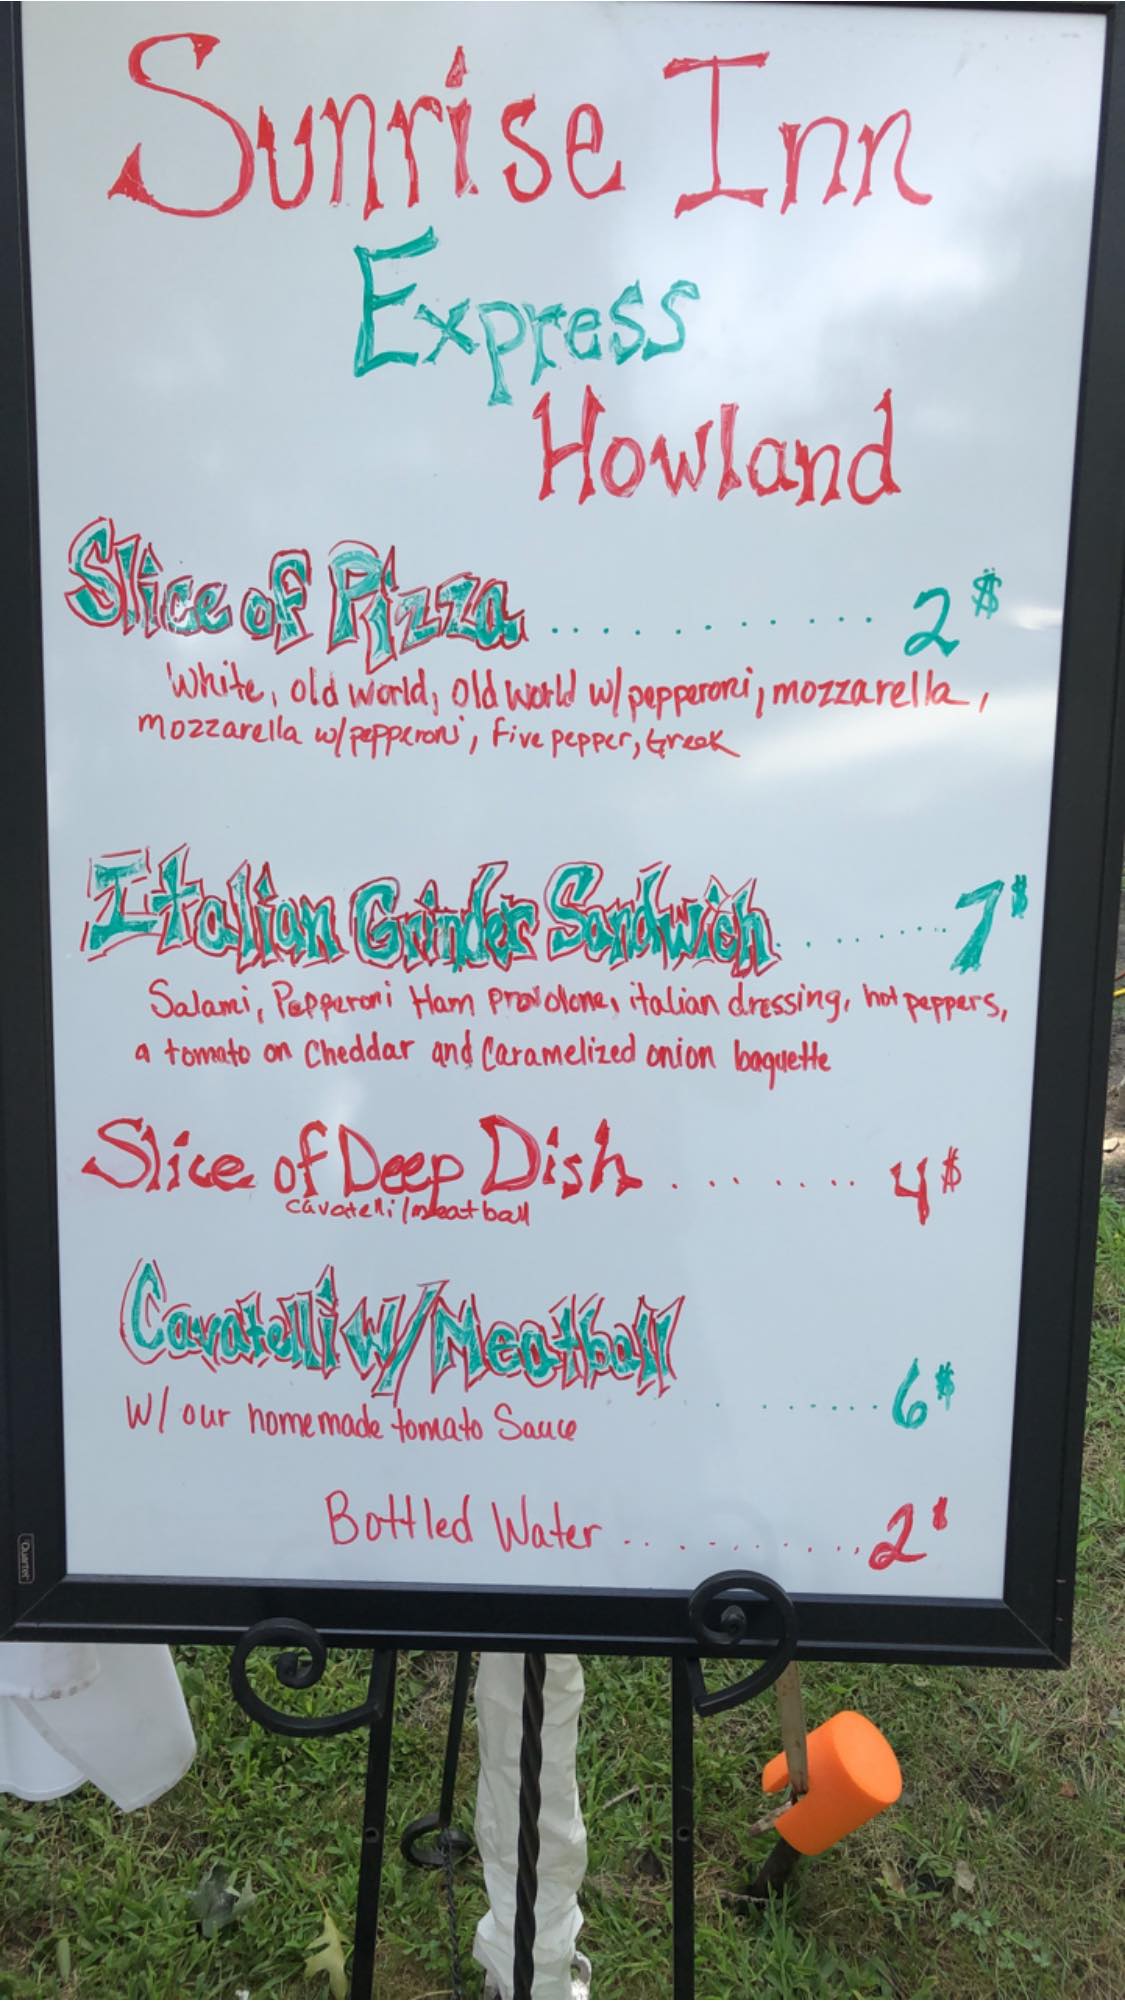 Sunrise Inn
Express
Howland
Slice of Pizza ............ 2$
White, old world, Old World w/ pepperoni, mozzarella,
mozzarella w/ pepperoni, five pepper, Greek
Italian Grinder Sandwich ......... 7$
Salami, Pepperoni Ham provolone, italian dressing, hot peppers,
a tomato on Cheddar and Caramelized onion baguette
Slice of Deep Dish ........ 4$
cavatelli/meatball
Cavatelli w/ Meatball
w/ our homemade tomato Sauce ......... 6$
Bottled Water ........... 2$
Quartet